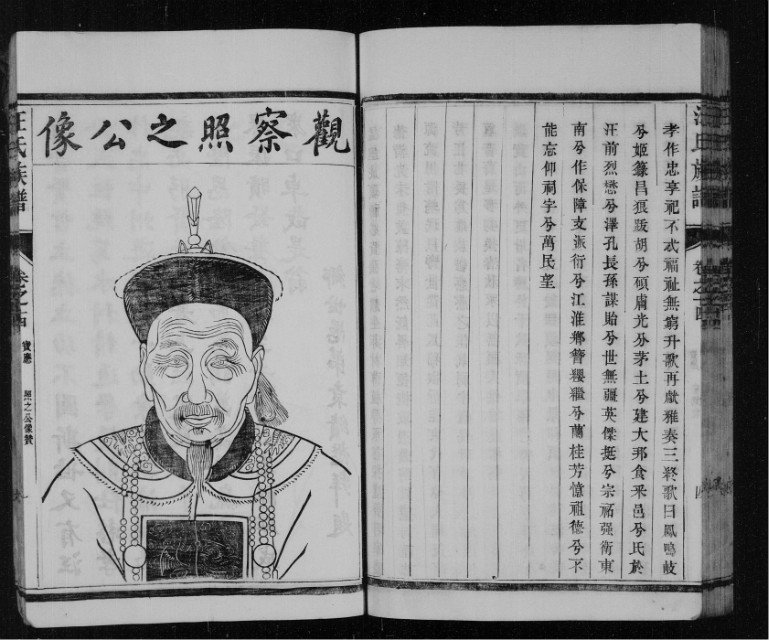 孝作忠享祀不忒福祉無窮升歌再獻雅奏三終歌曰鳳鳴岐
兮姬籙昌狼跋胡兮碩膚光分茅土兮建大邦食采邑兮氏於
汪前烈懋兮澤孔長孫謀貽兮世無疆英傑挺兮宗祏强衛東
南兮作保障支派衍兮江淮鄉簪纓繼兮蘭桂芳憶祖德兮不
能忘仰祠宇兮萬民望
汪氏族譜
卷之十四
觀察照之公像
汪氏族譜
卷之十四
寶應
照之公像贊
九